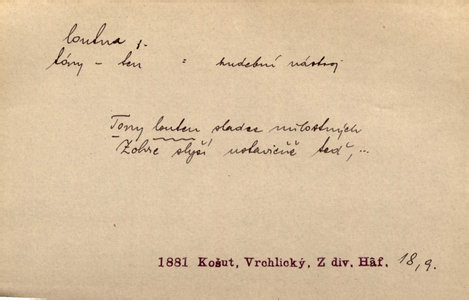 loutna, f.
tóny – ten = hudební nástroj
Tony louten sladce milostných
Zohre slyší ustavičně teď, ...
1881 Košut, Vrchlický, Z div. Háf. 18, 9.